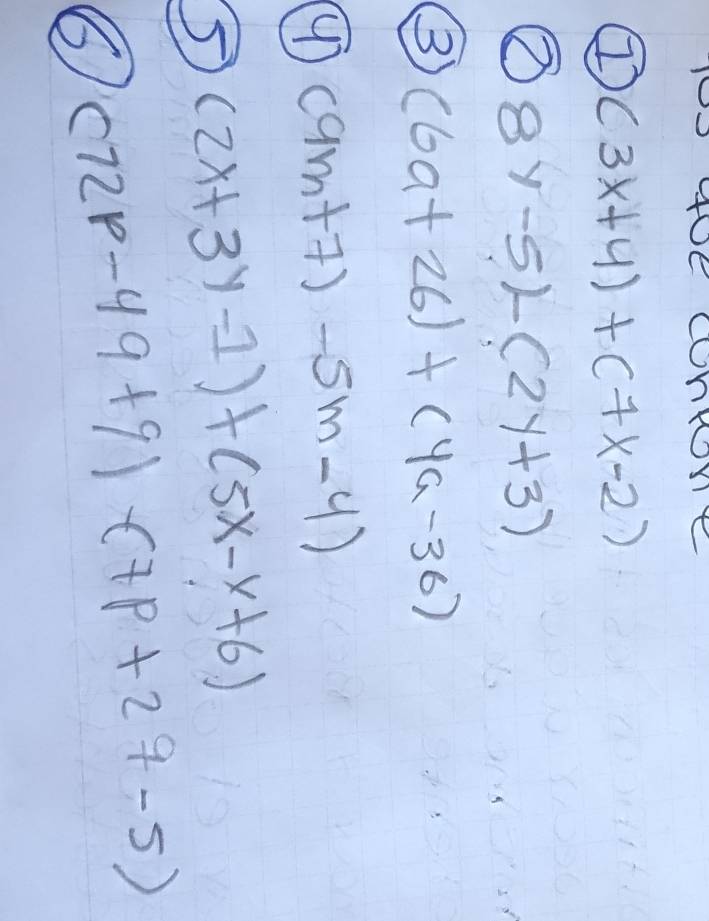 ① (3x+4)+(7x-2)
② 8y-5)-(2y+3)
③ (6a+26)+(4a-36)
④ (9m+7)-5m-4)
⑤ (2x+3y-1)+(5x-y+6)
⑥ (12p-4q+9)-(7p+2q-5)